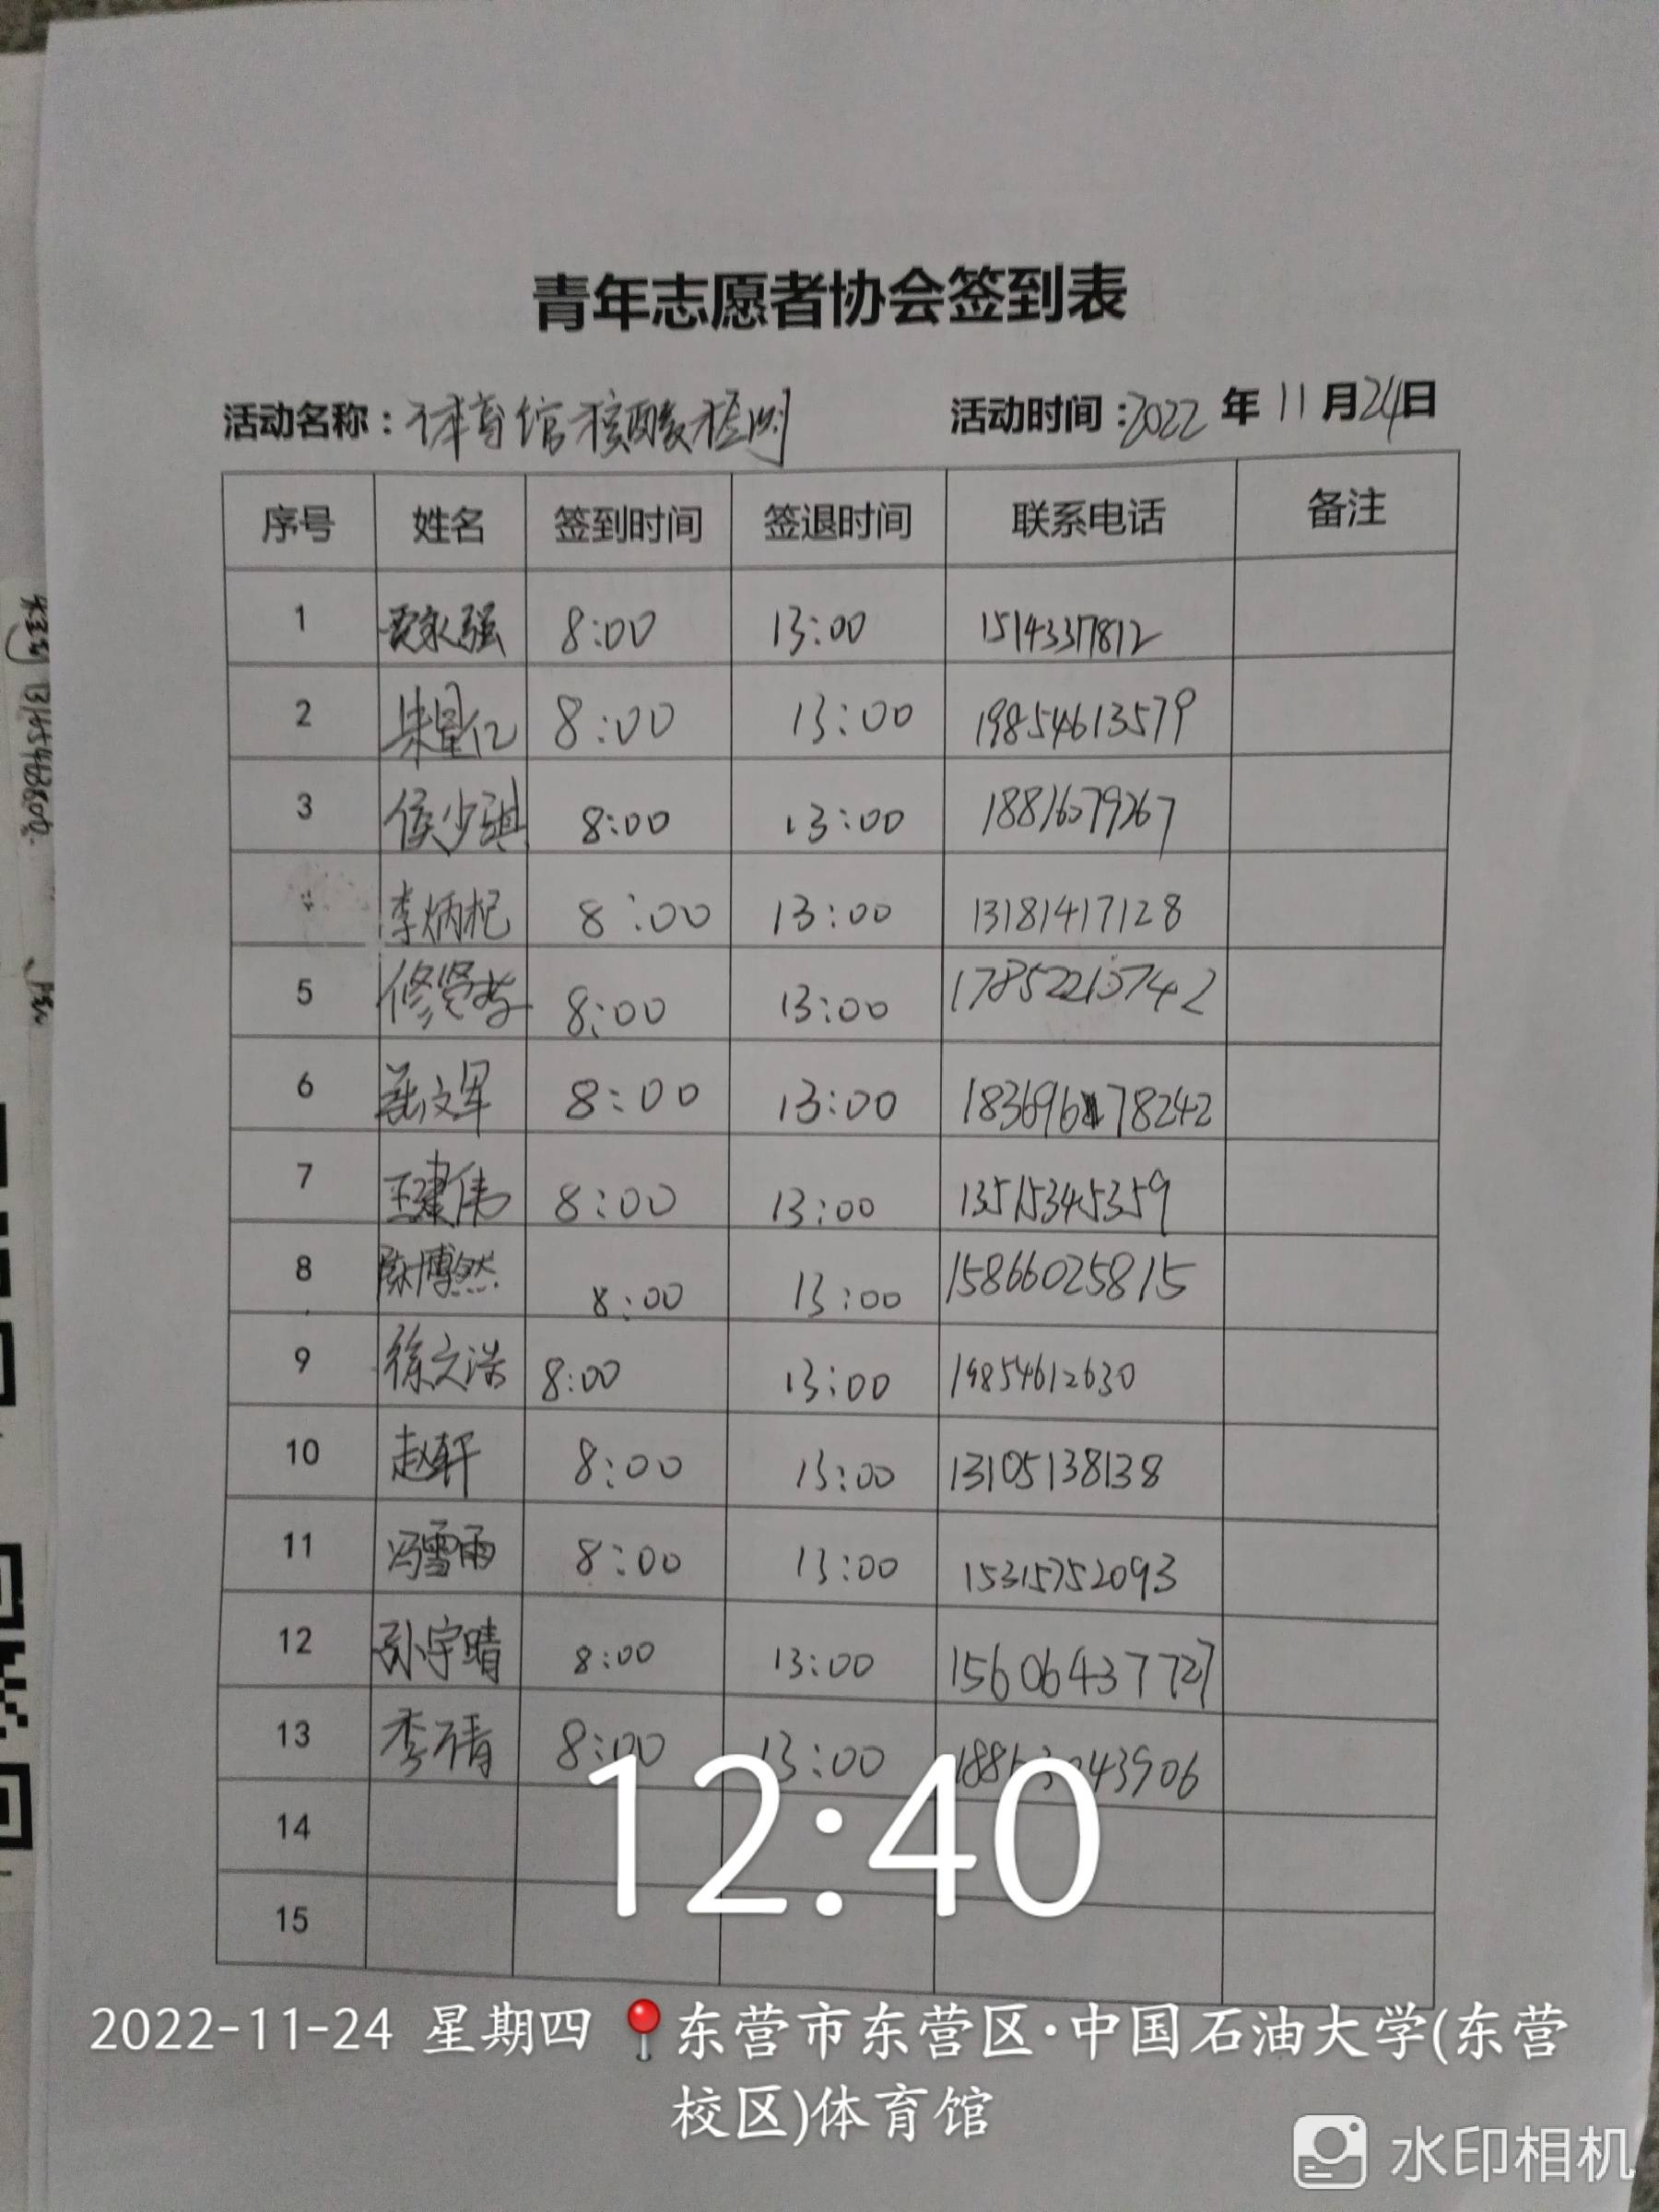 青年志愿者协会签到表
活动名称：体育馆核酸检测 活动时间：2022年11月24日
序号 姓名 签到时间 签退时间 联系电话 备注
1 永强 8:00 13:00 15143317812
2 8:00 13:00 19854613579
3 侯少琪 8:00 13:00
李炳杞 8:00 13:00 13181417128
5 修贤 8:00 13:00
6 文军 8:00 13:00
7 王建伟 8:00 13:00 13515345359
8 陈博然 8:00 13:00 15866025815
9 徐文浩 8:00 13:00 19854612630
10 赵轩 8:00 13:00 13105138138
11 冯雪雨 8:00 13:00 15315752093
12 孙宇晴 8:00 13:00 15606437727
13 8:00 13:00
14
15
12:40
2022-11-24 星期四 东营市东营区·中国石油大学(东营
校区)体育馆
水印相机